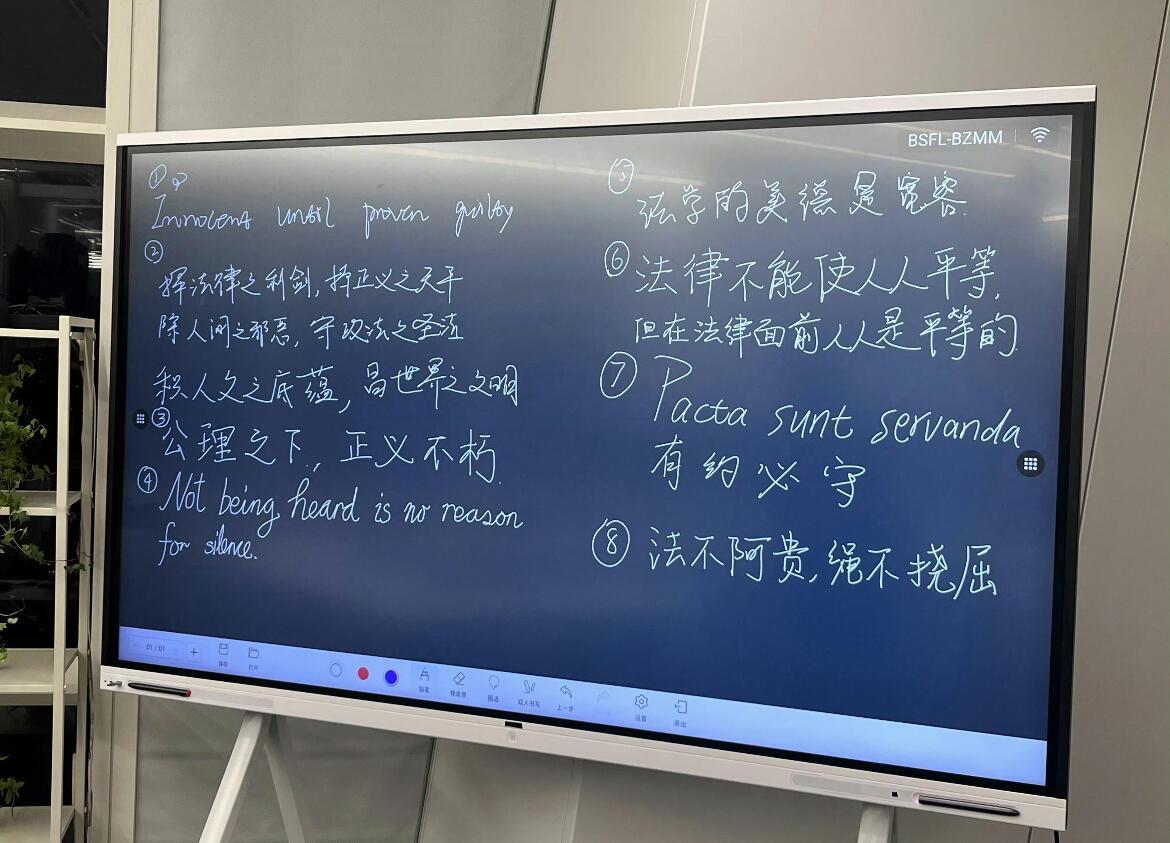 BSFL-BZMM
①
Innocent until proven guilty
②
挥法律之利剑,持正义之天平
除人间之邪恶,守政法之圣洁
积人文之底蕴,昌世界之文明
③
公理之下,正义不朽.
④ Not being heard is no reason
for silence.
⑤
法学的美德是宽容.
⑥ 法律不能使人人平等,
但在法律面前人人是平等的.
⑦ Pacta sunt servanda
有约必守
⑧ 法不阿贵,绳不挠屈
01/01
保存
打开
铅笔
板皮擦
圈选
双人书写
上一步
设置
退出